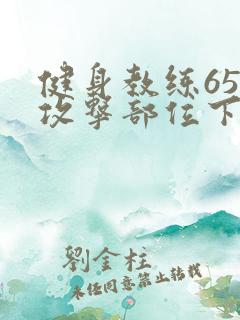 健身教练65
攻击部位下
劉金柱
未经同意禁止转载